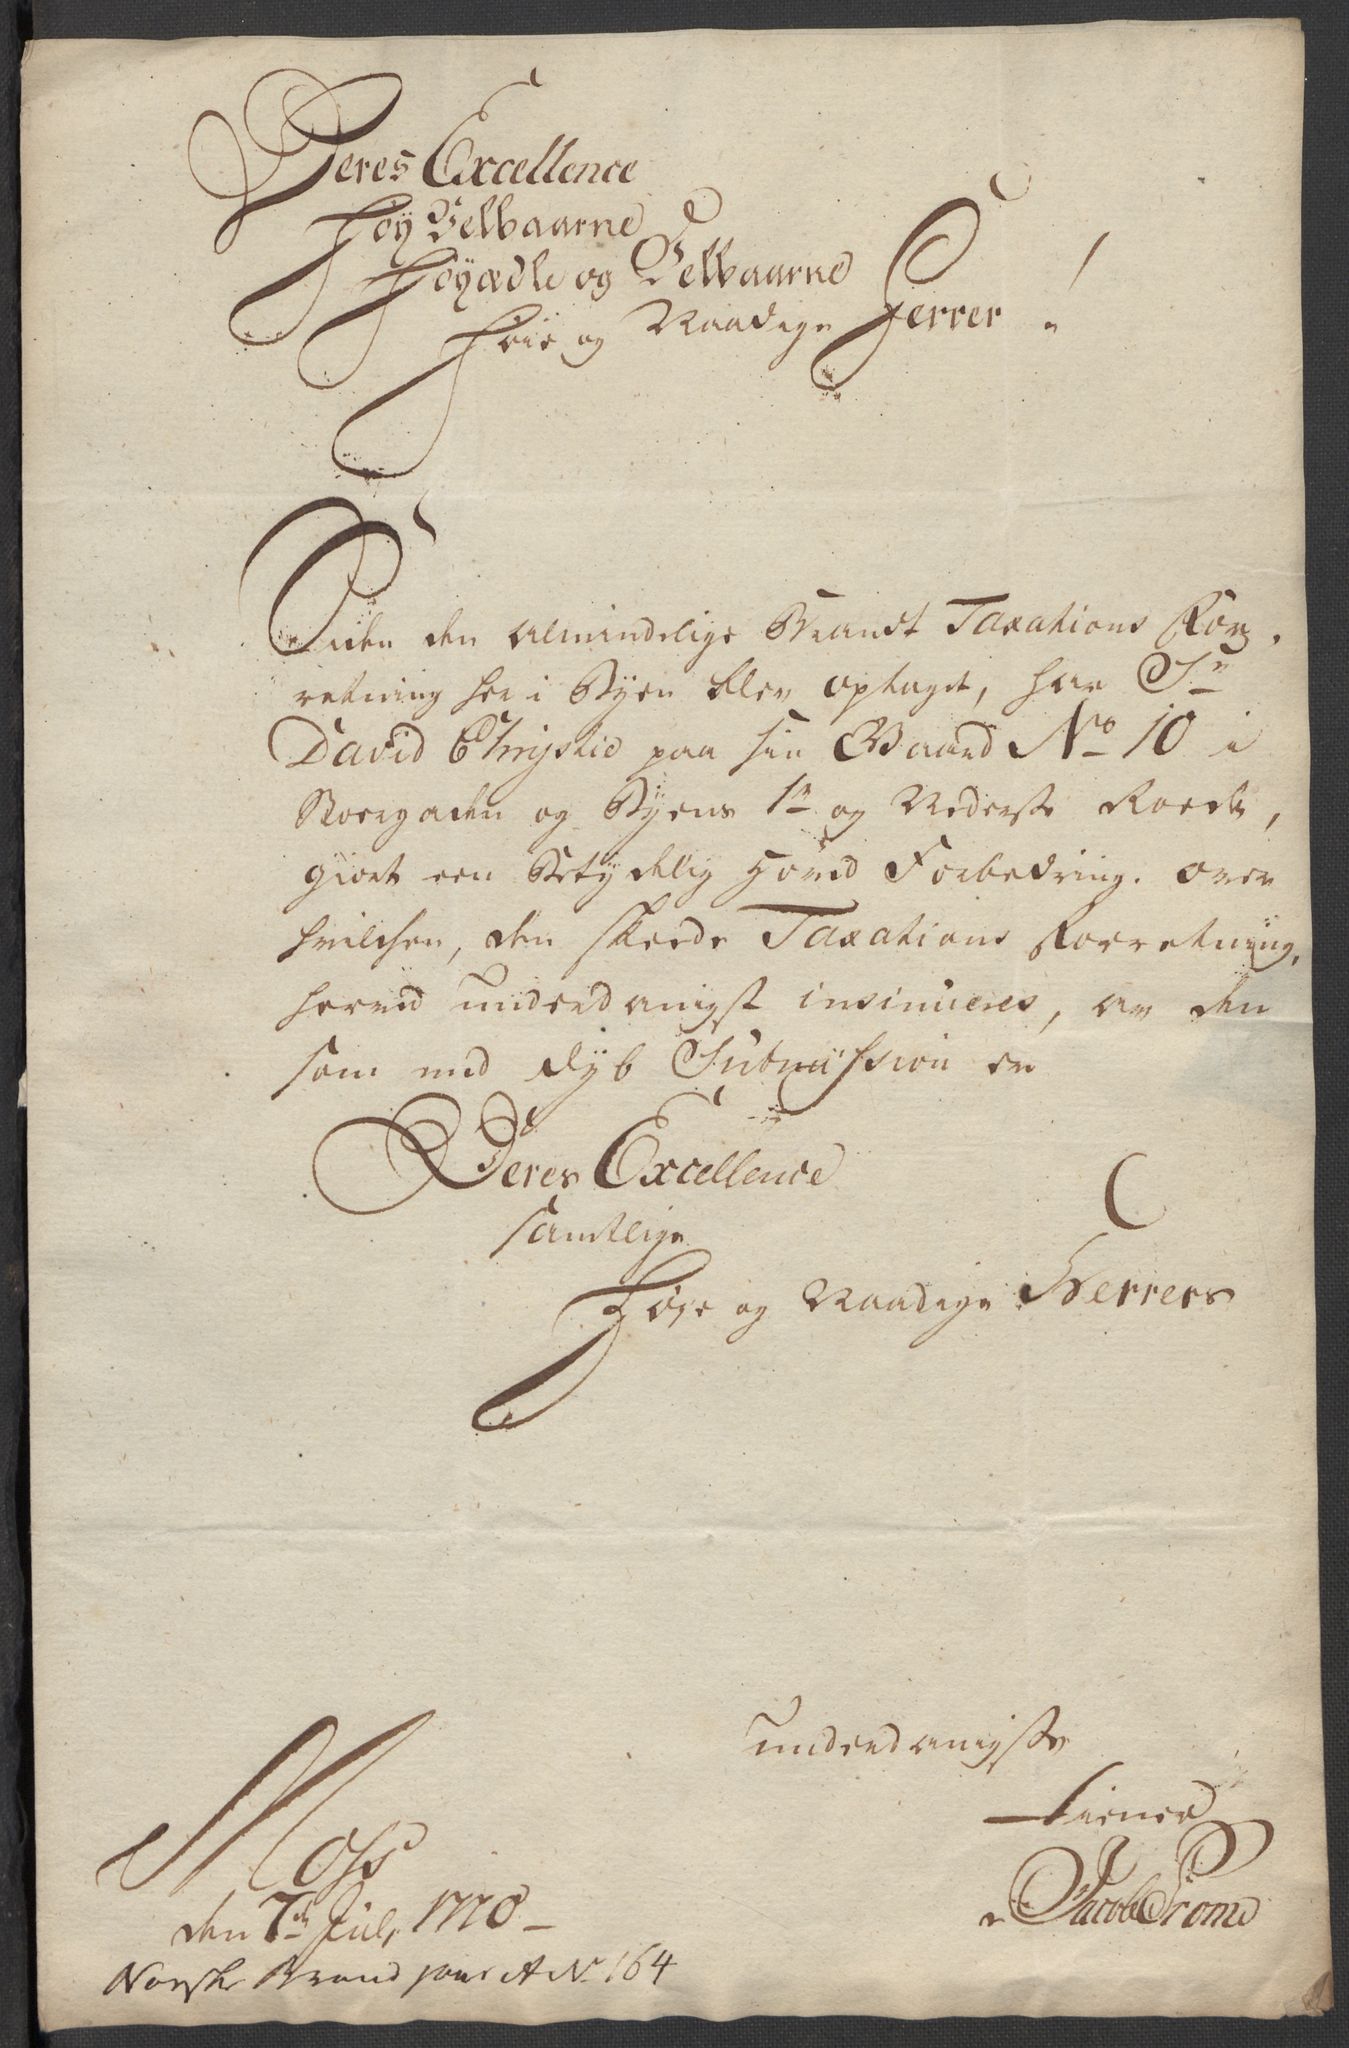 Deres Excellence
Høy Velbaarne
Høyædle og Velbaarne
Høie og Naadige Herrer!
Siden den almindelige Brandt Taxations For-
retning her i Byen blev optaget, har Sr
David Chrystie paa sin Gaard No 10 i
Storgaden og Byens 1te og Nederste Roede,
giort een Betydelig Hoved Forbedring. over
hvilchen, den skeede Taxations Forretning,
herved underdanigst insinueres, av den
som med dyb Submission er
Deres Excellence
samtlige
Høye og Naadige Herrers
underdanigste
Tiener
Jacob Prome
Moss
den 7de Julj 1770
Norske Brand Jour A No 164